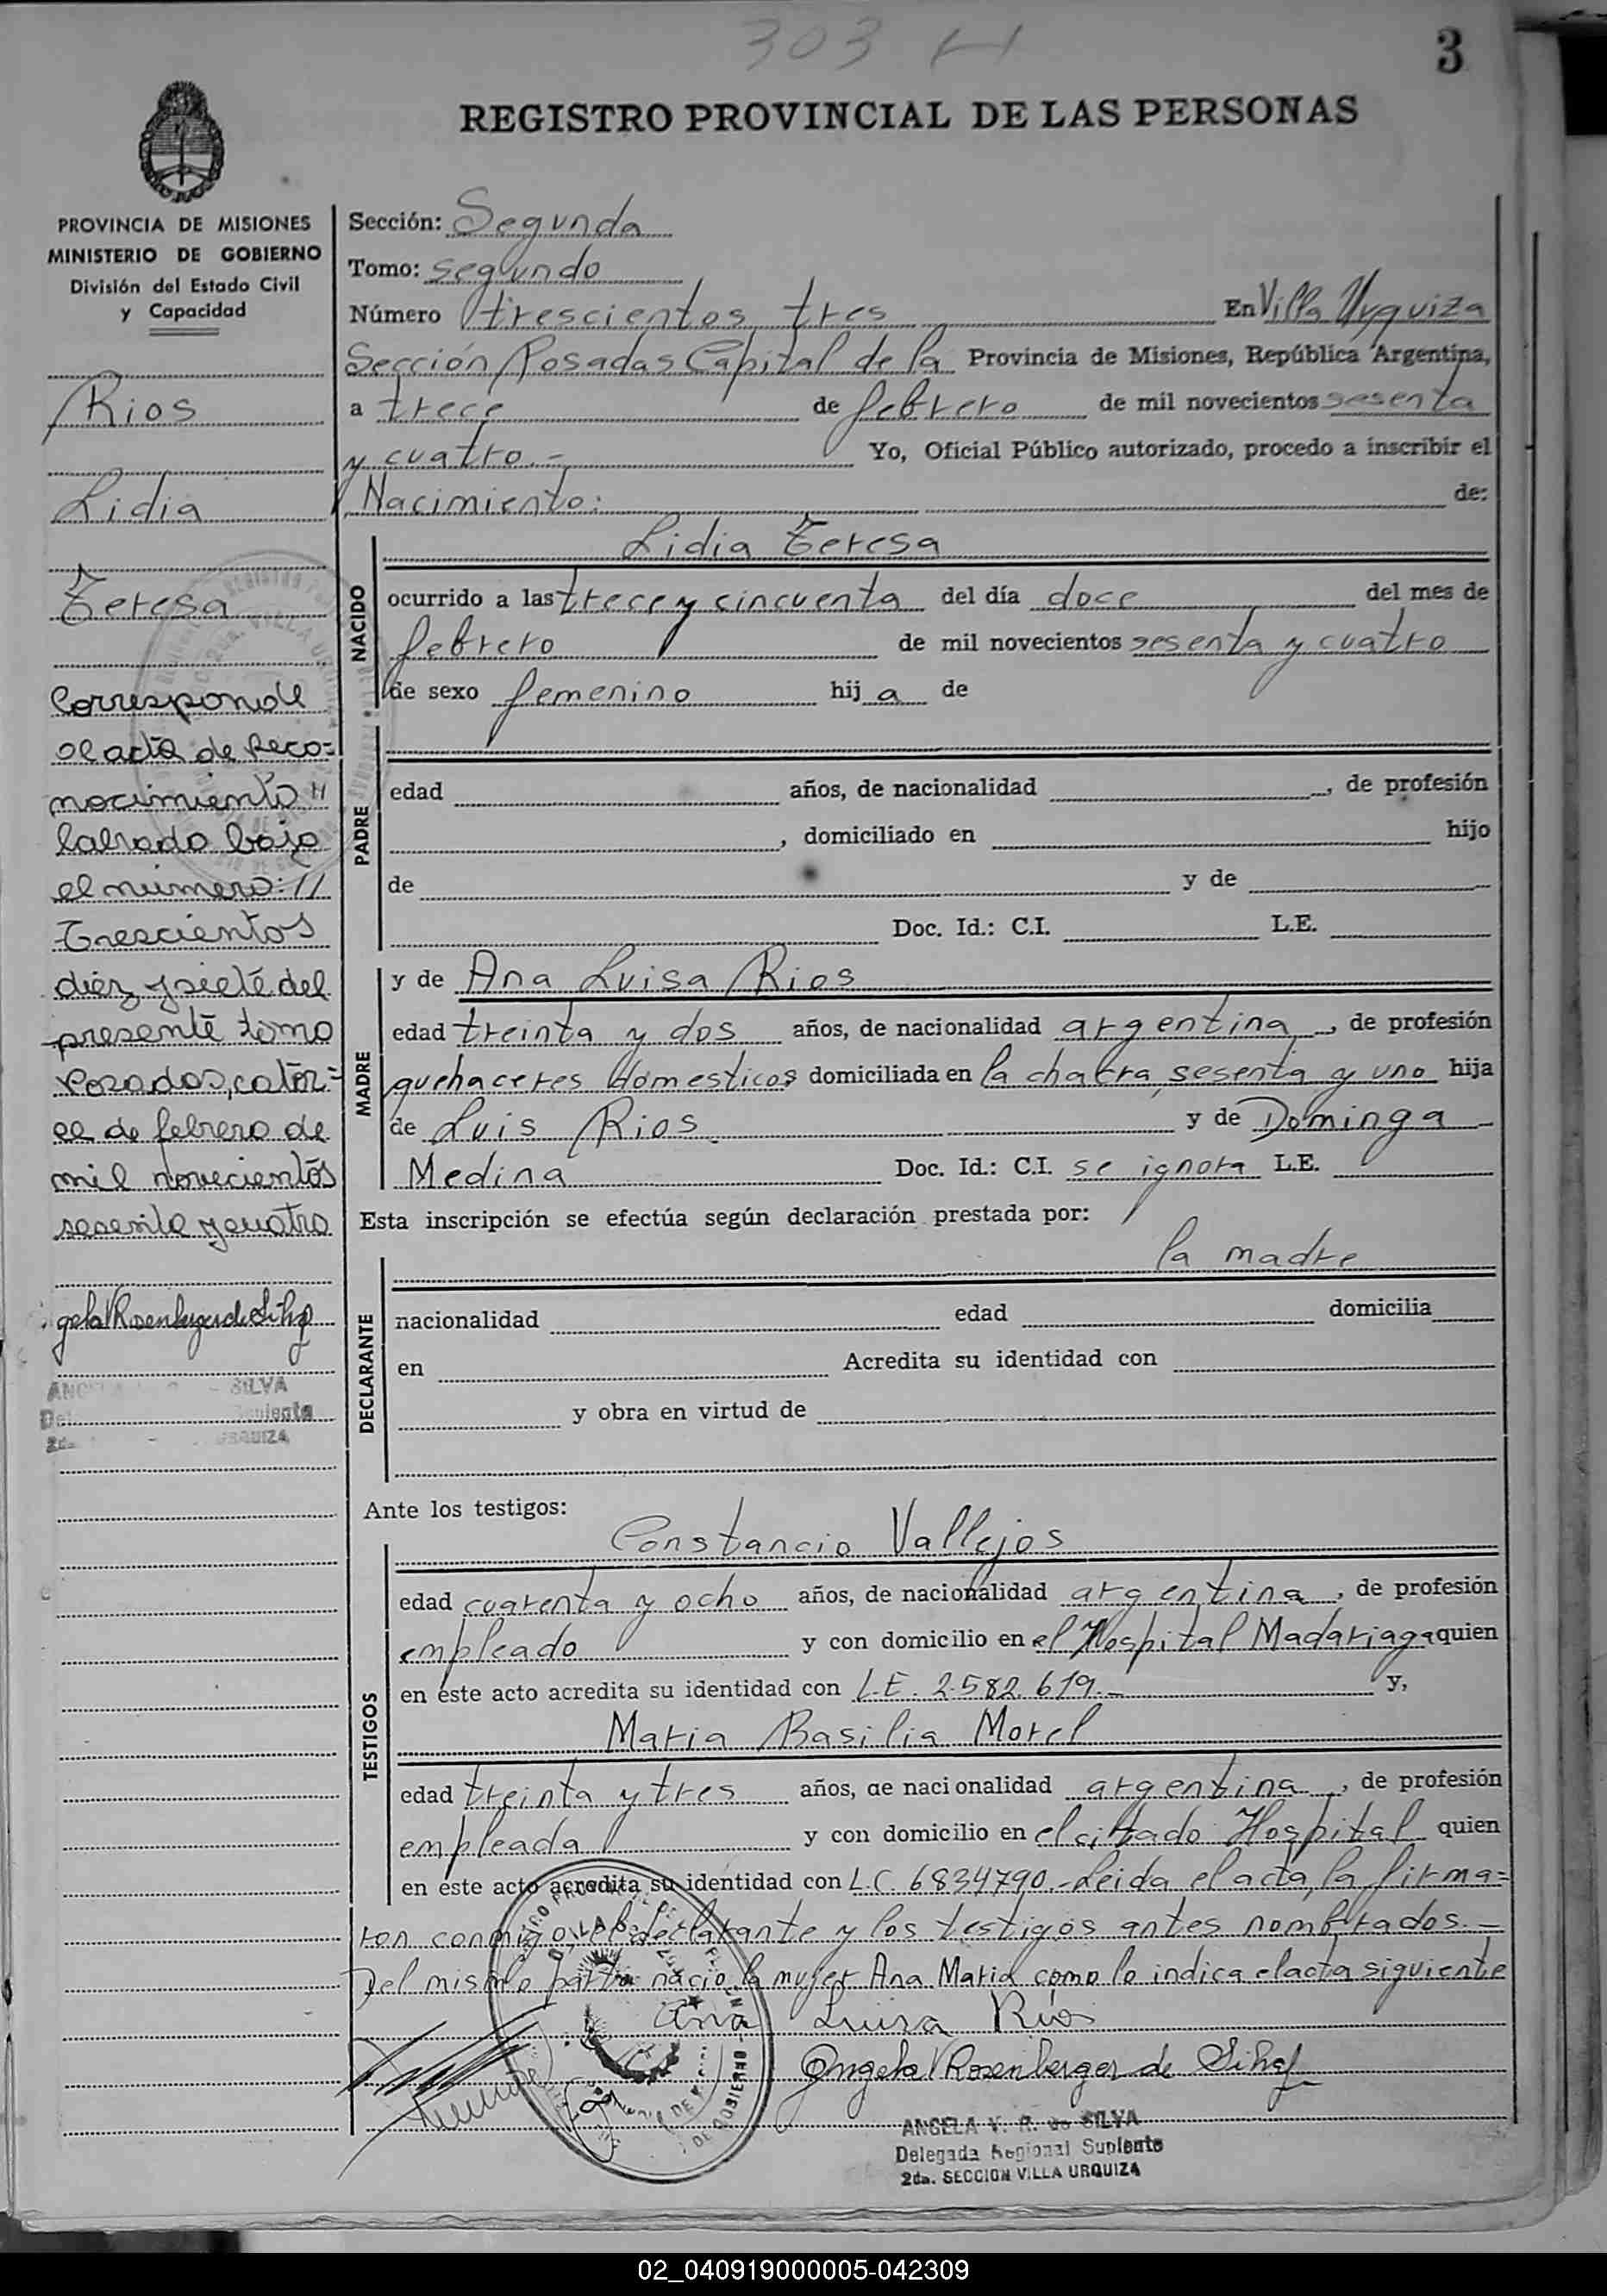 303 H
3
REGISTRO PROVINCIAL DE LAS PERSONAS
PROVINCIA DE MISIONES
MINISTERIO DE GOBIERNO
División del Estado Civil
y Capacidad
Rios
Lidia
Teresa
Corresponde
al acta de Reco=
nocimiento "
labrado bajo
el número: //
Trescientos
diez y siete del
presente tomo
Posadas, cator=
ce de febrero de
mil novecientos
sesenta y cuatro
Sección: Segunda
Tomo: segundo
Número trescientos tres En Villa Urquiza
Sección Posadas Capital de la Provincia de Misiones, República Argentina,
a trece de febrero de mil novecientos sesenta
y cuatro.- Yo, Oficial Público autorizado, procedo a inscribir el
Nacimiento: de:
NACIDO
Lidia Teresa
ocurrido a las trece y cincuenta del día doce del mes de
febrero de mil novecientos sesenta y cuatro
de sexo femenino hij a de
PADRE
edad años, de nacionalidad , de profesión
, domiciliado en hijo
de y de
Doc. Id.: C.I. L.E.
MADRE
y de Ana Luisa Rios
edad treinta y dos años, de nacionalidad argentina , de profesión
quehaceres domesticos domiciliada en la chacra sesenta y uno hija
de Luis Rios y de Dominga
Medina Doc. Id.: C.I. se ignora L.E.
Esta inscripción se efectúa según declaración prestada por:
la madre
DECLARANTE
nacionalidad edad domicilia
en Acredita su identidad con
y obra en virtud de
Ante los testigos:
TESTIGOS
Constancio Vallejos
edad cuarenta y ocho años, de nacionalidad argentina , de profesión
empleado y con domicilio en el Hospital Madariaga quien
en este acto acredita su identidad con L.E. 2.582.619.- y,
Maria Basilia Morel
edad treinta y tres años, de nacionalidad argentina , de profesión
empleada y con domicilio en el citado Hospital quien
en este acto acredita su identidad con L.C. 6834790.- Leida el acta, la firma=
ron conmigo el declarante y los testigos antes nombrados.-
Del mismo parto nacio la mujer Ana Maria como lo indica el acta siguiente
Ana Luisa Rios
Angela V Rosenberger de Silva
ANGELA V. R. de SILVA
Delegada Regional Suplente
2da. SECCION VILLA URQUIZA
02_040919000005-042309